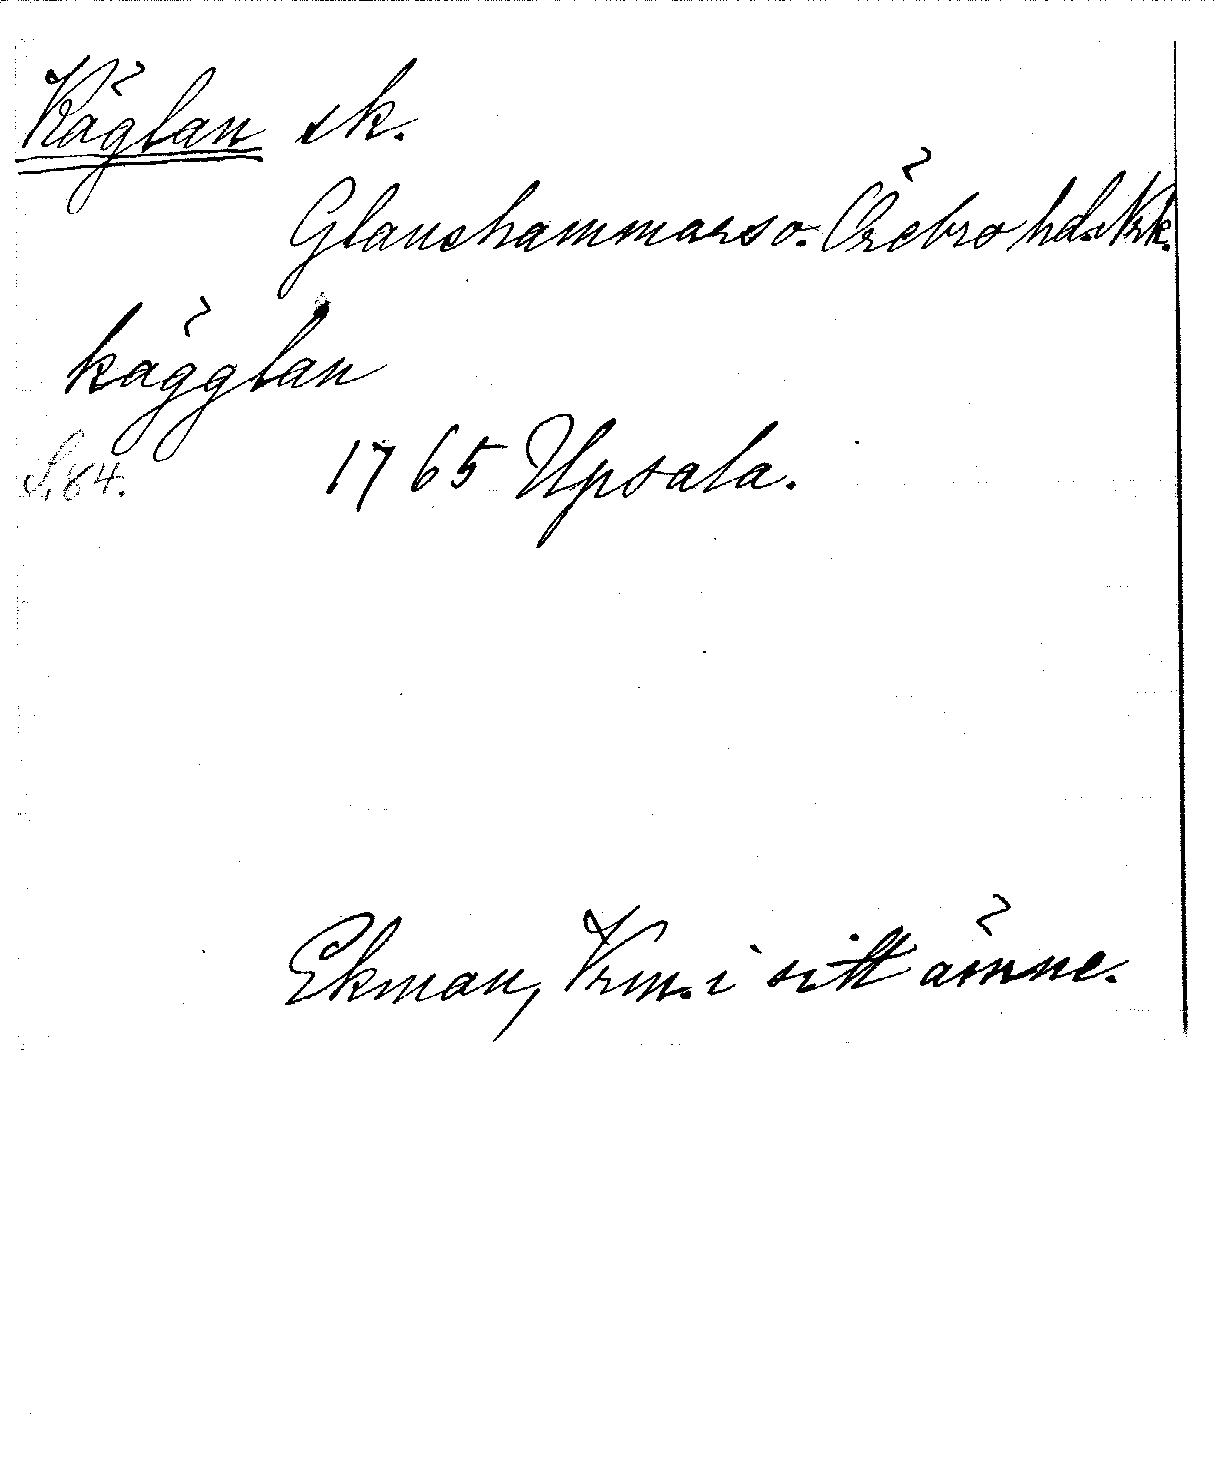 Käglan sk.
Glanshammars o. Örebro hd. Nrk.
kägglan
S. 84. 1765 Upsala.
Ekman, Vrm. i sitt ämne.